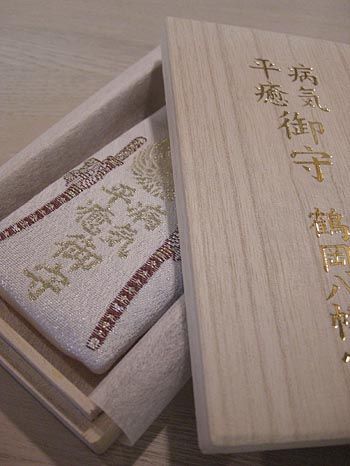 病気
平癒
御守
鶴岡八幡
病気
平癒
御守